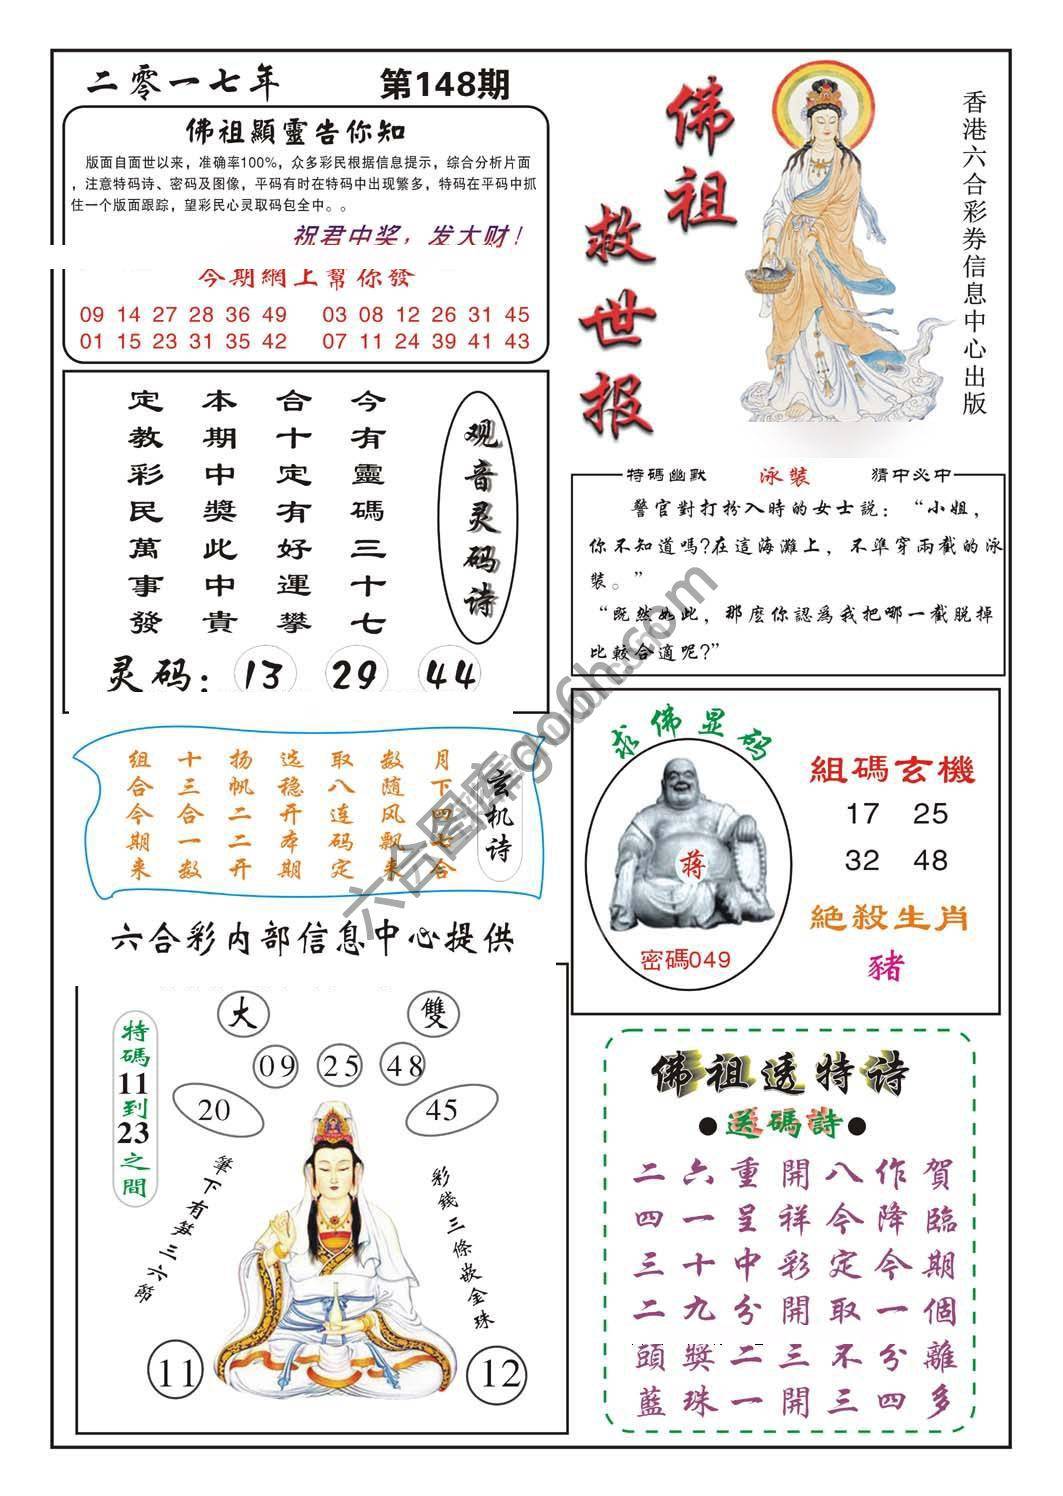 二零一七年 第148期
佛祖顯靈告你知
版面自面世以来，准确率100%，众多彩民根据信息提示，综合分析片面
，注意特码诗、密码及图像，平码有时在特码中出现繁多，特码在平码中抓
住一个版面跟踪，望彩民心灵取码包全中。。
祝君中奖，发大财！
今期網上幫你發
09 14 27 28 36 49 03 08 12 26 31 45
01 15 23 31 35 42 07 11 24 39 41 43
佛祖
救世报
香港六合彩券信息中心出版
观音灵码诗
今有靈碼三十七
合十定有好運攀
本期中獎此中貴
定教彩民萬事發
灵码： 13 29 44
特碼幽默 泳裝 猜中必中
警官對打扮入時的女士説：“小姐，
你不知道嗎?在這海灘上，不準穿兩截的泳
裝。”
“既然如此，那麼你認爲我把哪一截脱掉
比較合適呢?”
玄机诗
月下四七合
数随风飘来
取八连码定
选稳开本期
扬帆二二开
十三合一数
组合今期来
六合彩内部信息中心提供
求佛显码
蒋
密碼049
組碼玄機
17 25
32 48
絕殺生肖
豬
大 雙
09 25 48
20 45
特碼11到23之間
筆下有笋三六節
彩錢三條嵌金珠
11 12
佛祖透特诗
●送碼詩●
賀臨期個離多
作降今一分四
八今定取不三
開祥彩開三開
重呈中分二一
六一十九獎珠
二四三二頭藍
六合图库go6h.com